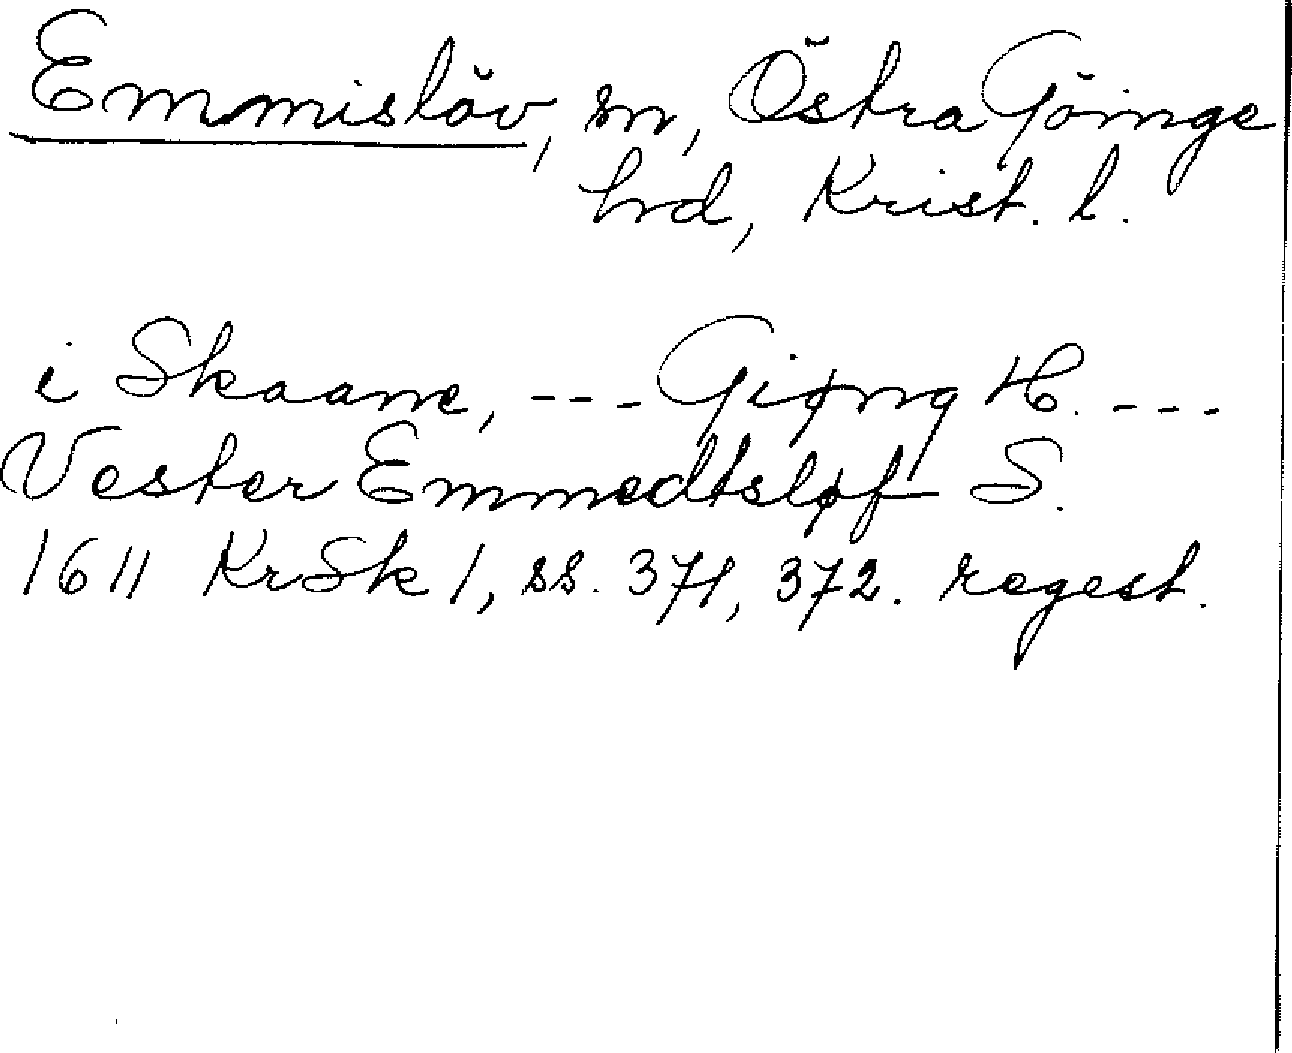 Emmislöv, sn, Östra Göinge
hd, Krist. l.
i Skaane, --- Giøng H. ---
Vester Emmedtsløf S.
1611 KrSk 1, ss. 371, 372. regest.